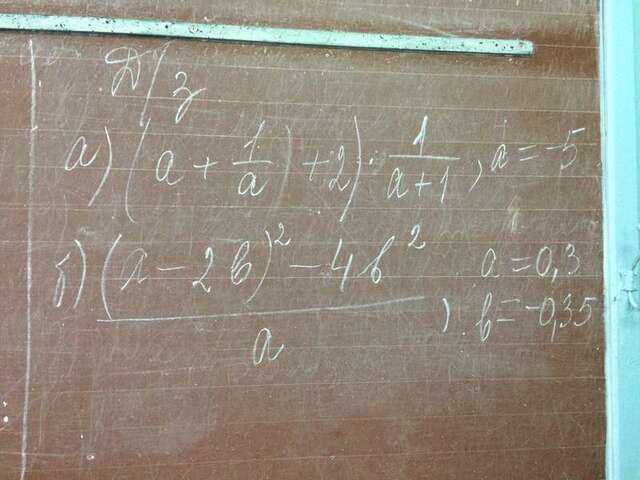 Д/з
а) (a + 1/a) + 2) · 1/(a+1), a = -5
б) ((a - 2b)² - 4b²)/a, a = 0,3
b = -0,35